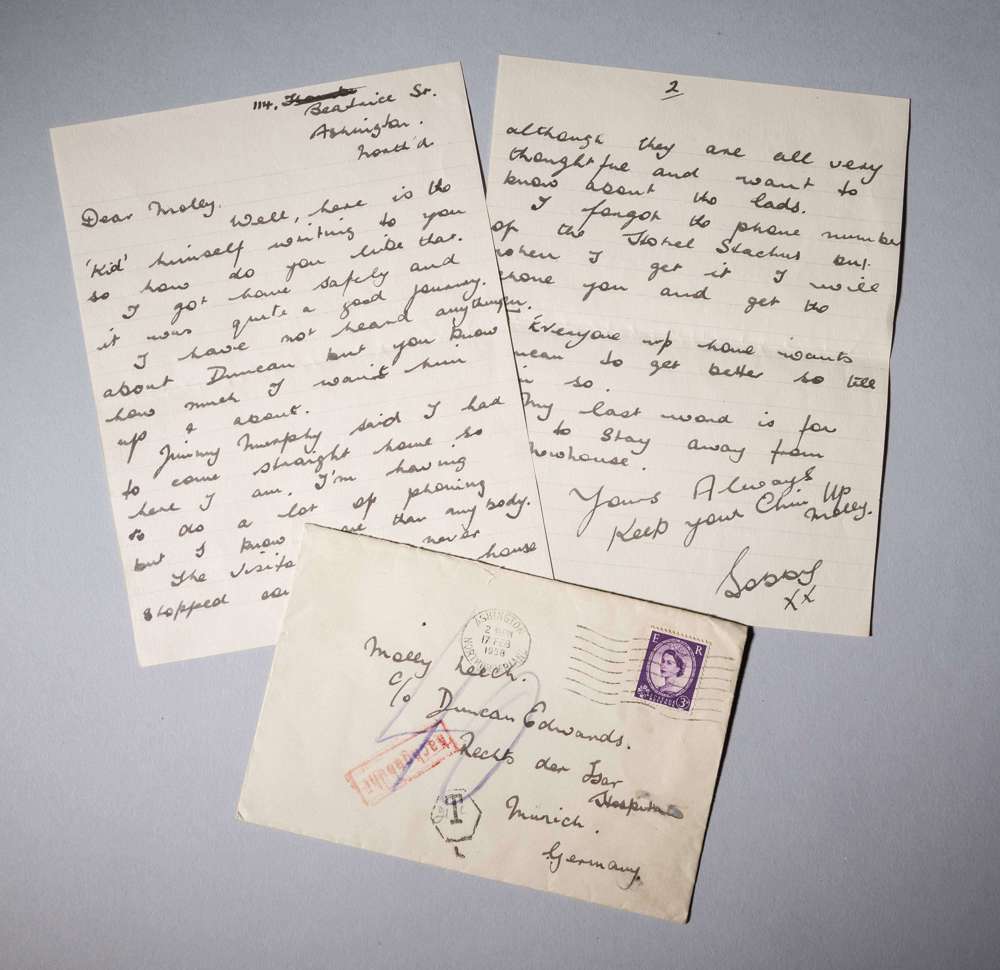 114, Beatrice St.
Ashington.
North'd
Dear Molly.
Well, here is the
'Kid' himself writing to you
so how do you like that.
I got home safely and
it was quite a good journey.
I have not heard anything
about Duncan but you know
how much I want him
up & about.
Jimmy Murphy said I had
to come straight home so
here I am. I'm having
to do a lot of phoning
but I know more than anybody.
The visito never
stopped house
2
although they are all very
thoughtful and want to
know about the lads.
I forgot the phone number
of the Hotel Stachus but
when I get it I will
phone you and get the
Everyone up home wants
to get better so till
so.
My last word is for
to stay away from
Yours Always
Keep your Chin Up
Molly.
Bobby
xx
ASHINGTON
17 FEB
1958
NORTHUMBERLAND
E R
POSTAGE
3D
Molly Leech.
c/o Duncan Edwards.
Rechts der Isar
Hospital
Munich.
Germany.
Nachgebühr
T